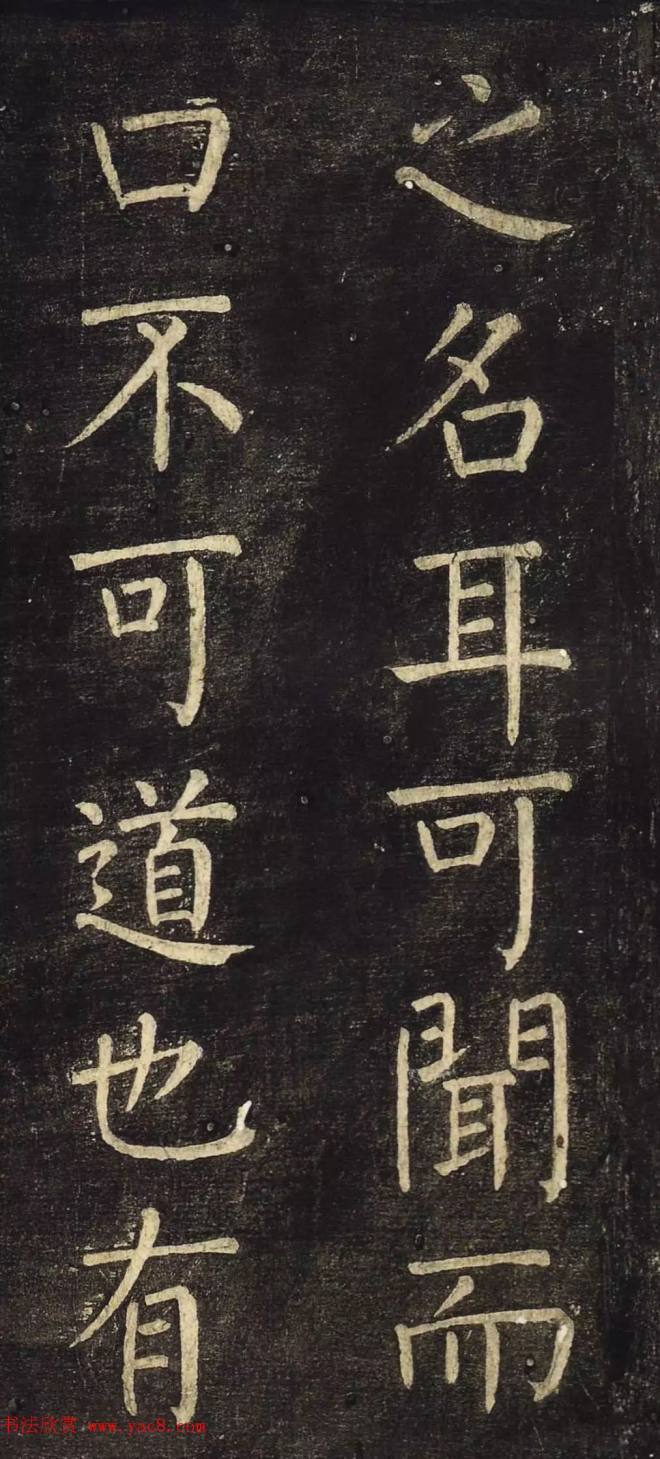 之名耳可聞而
口不可道也有
书法欣赏 www.yac8.com